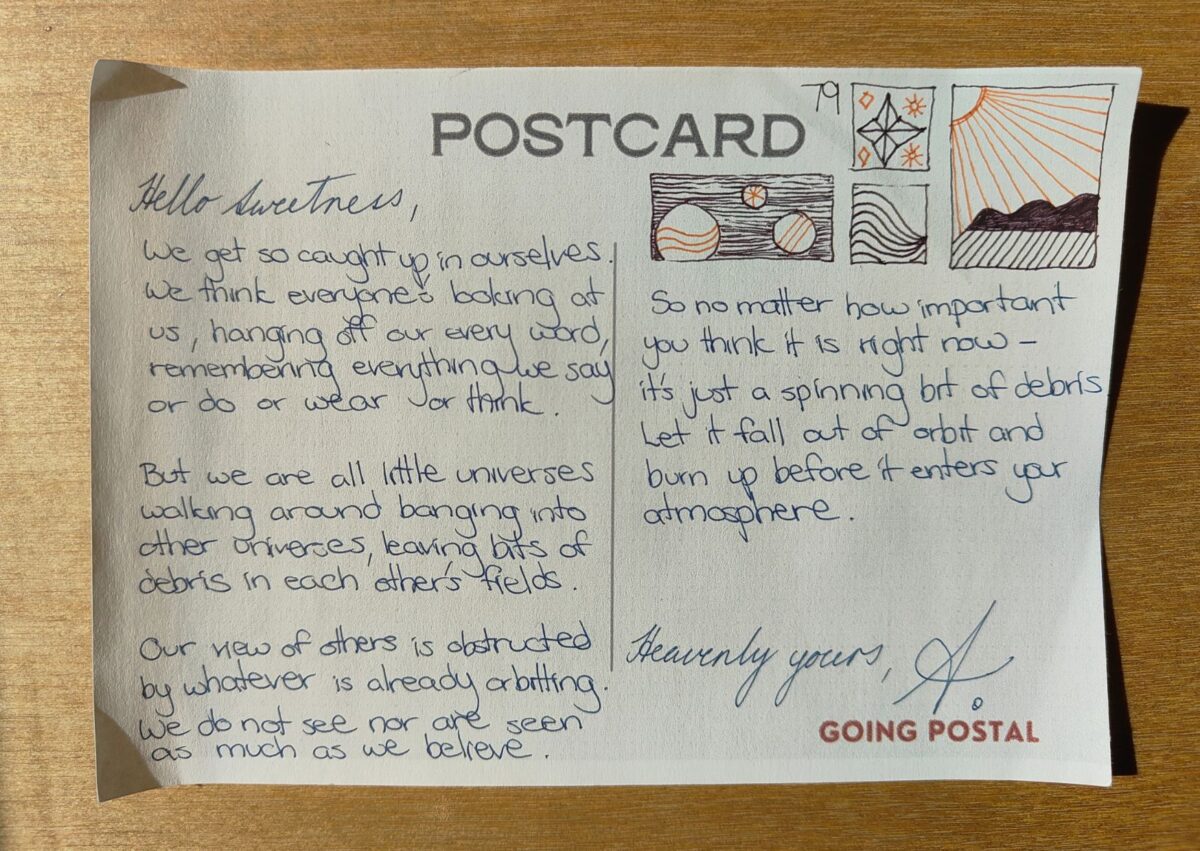 POSTCARD
79
Hello Sweetness,
We get so caught up in ourselves.
We think everyone's looking at
us, hanging off our every word,
remembering everything we say
or do or wear or think.
But we are all little universes
walking around banging into
other universes, leaving bits of
debris in each other's fields.
Our view of others is obstructed
by whatever is already orbitting.
We do not see nor are seen
as much as we believe.
So no matter how important
you think it is right now –
it's just a spinning bit of debris
Let it fall out of orbit and
burn up before it enters your
atmosphere.
Heavenly yours, A.
GOING POSTAL